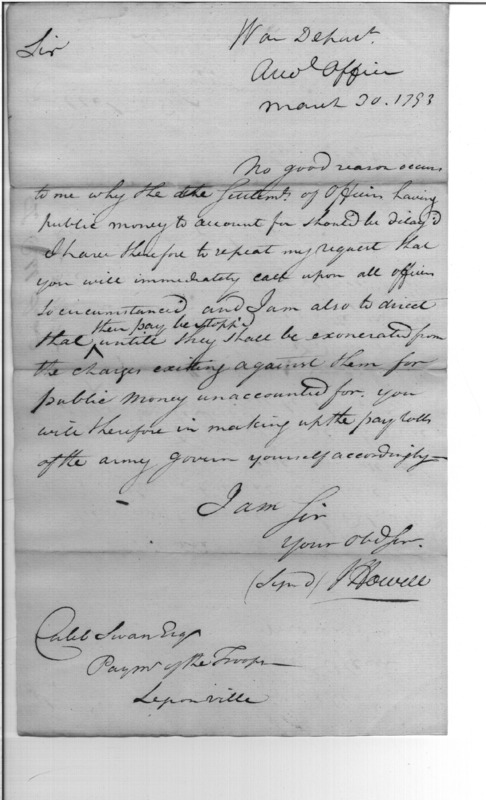 War Depart.
Sir
Accots Office
March 20. 1793
No good reason occurs
to me why the the Settlemt. of Officers having
public money to account for should be delay'd
I have therefore to repeat my request that
you will immediately call upon all officers
So circumstanced, and I am also to direct
their pay be stopp'd
that untill they shall be exonerated from
the charges existing against them for
public money unaccounted for. you
will therefore in making up the pay rolls
of the army govern yourself accordingly—
I am Sir
your Obd Ser.
(Sign'd) J Howell
Caleb Swan Esqr
Paymr of the Troops
Legionville